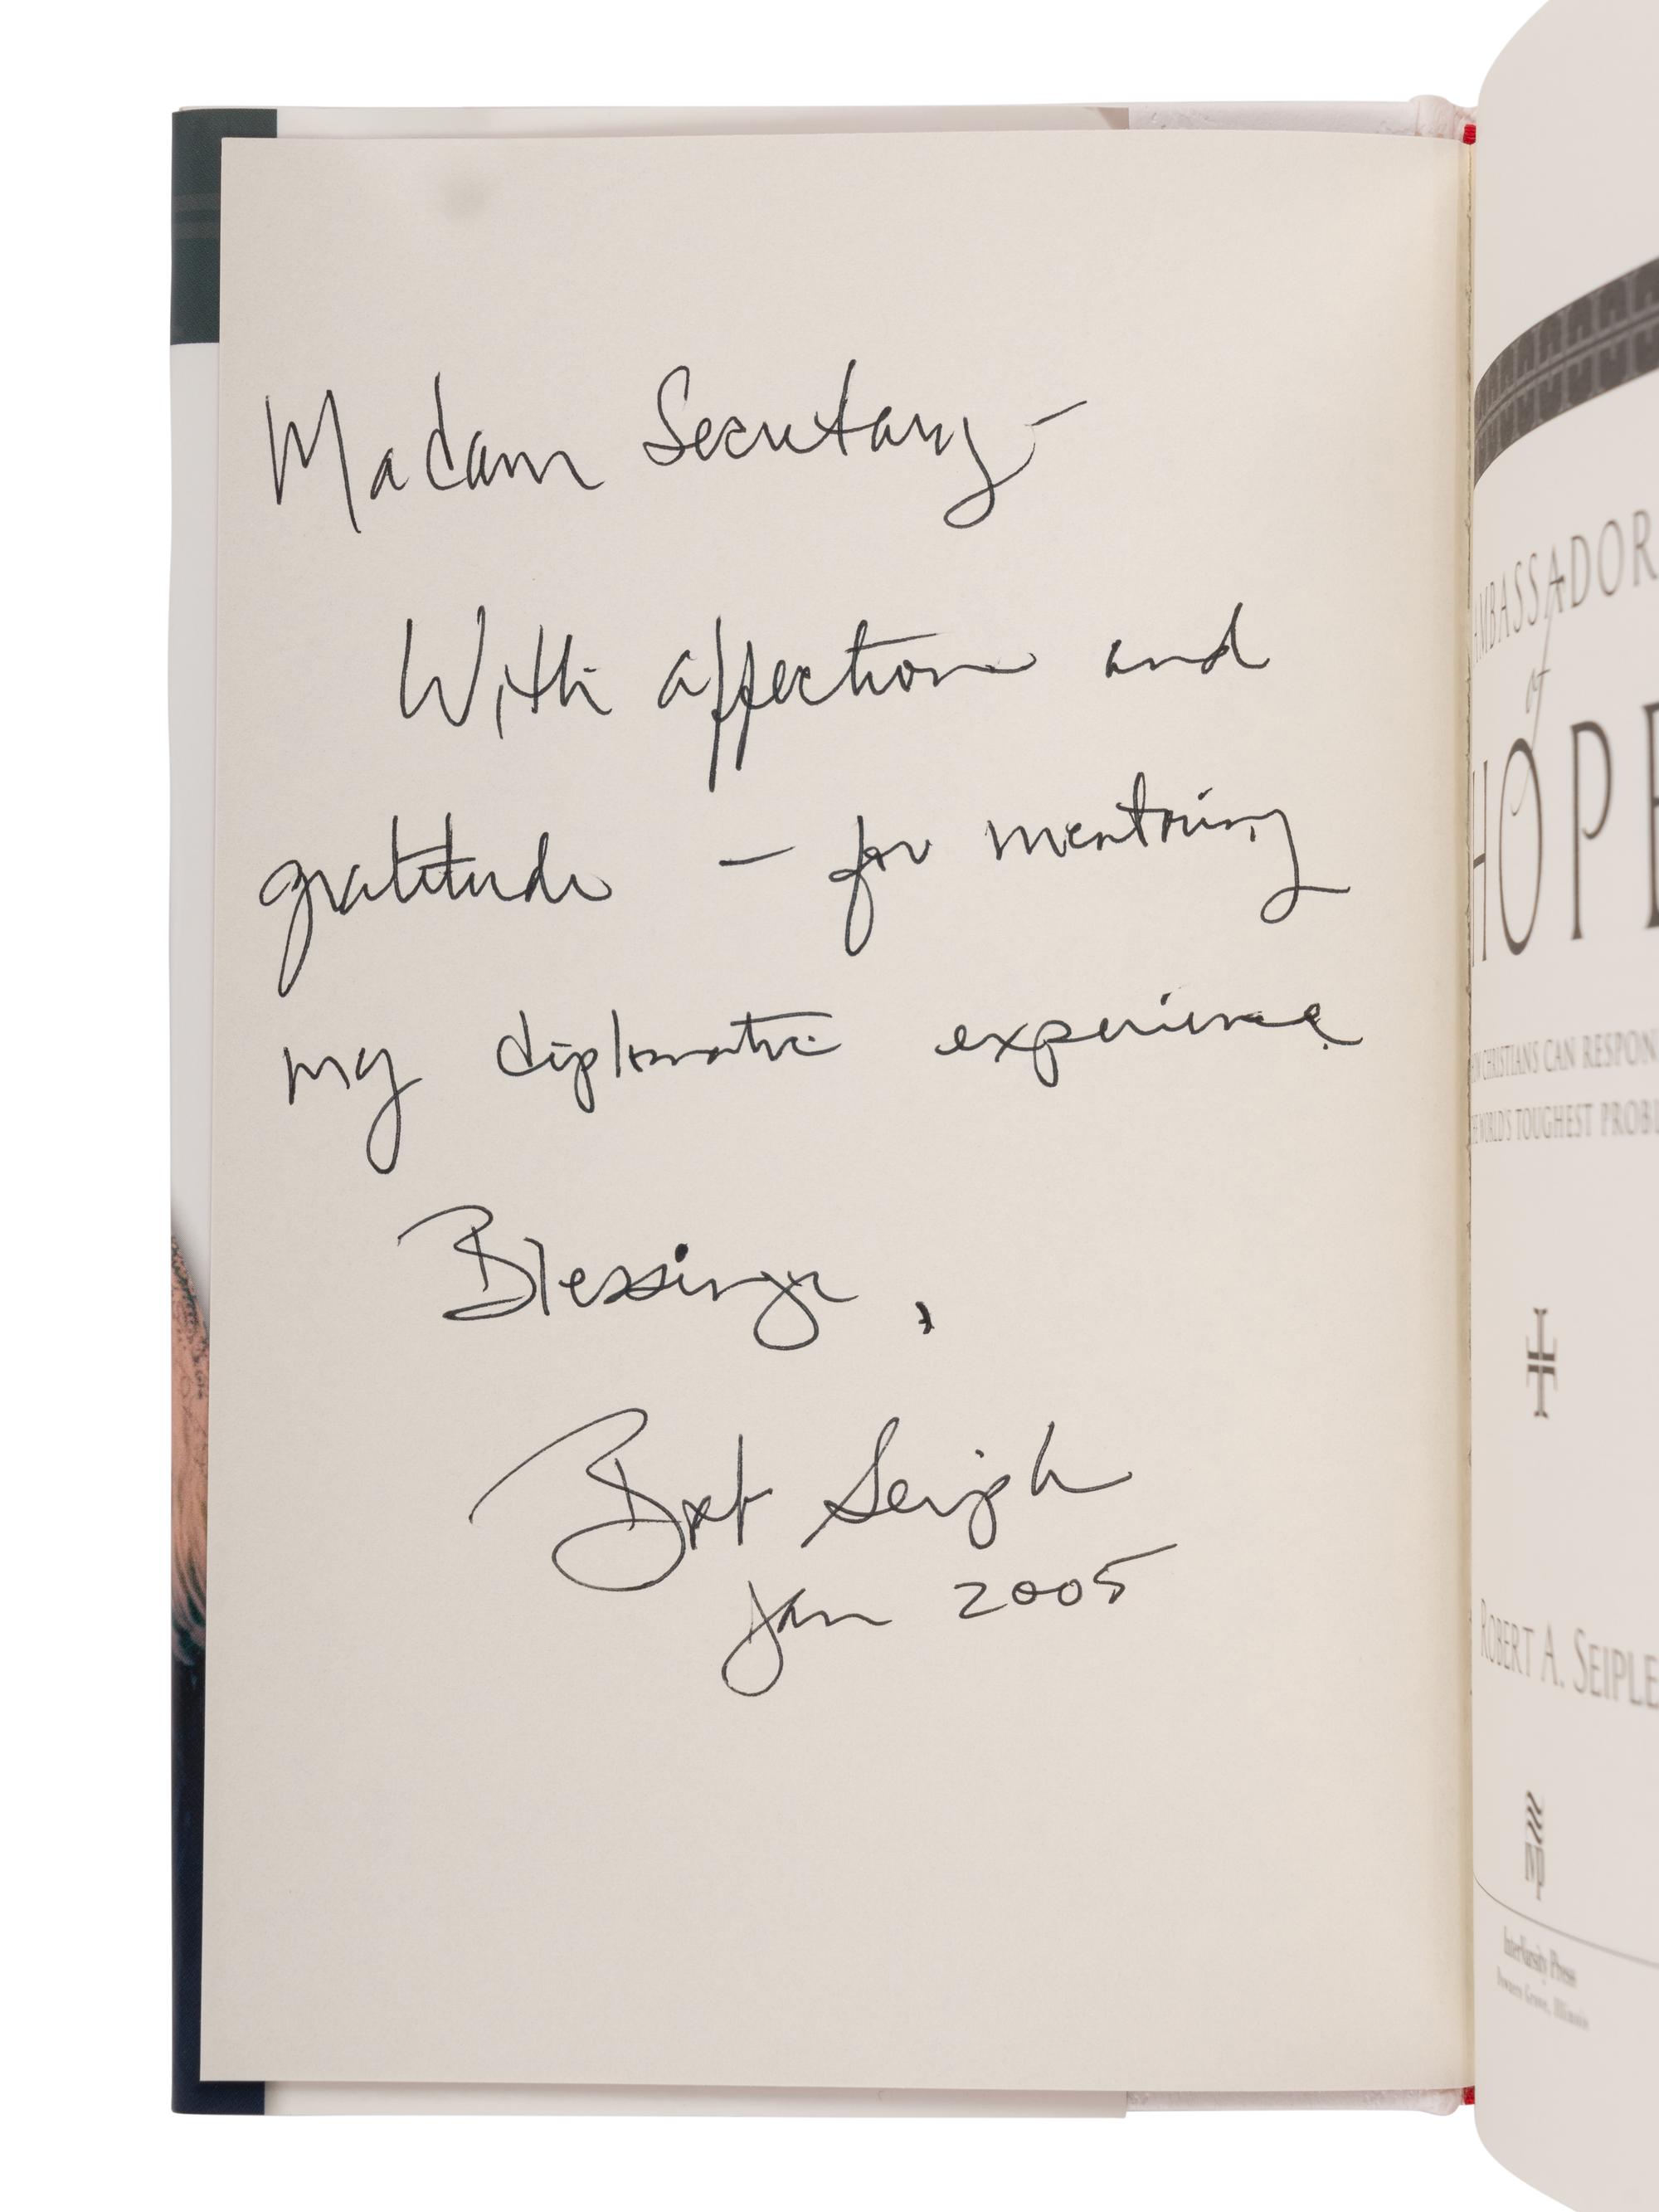 Madam Secretary –
With affection and
gratitude – for mentoring
my diplomatic experience.
Blessings,
Bob Seiple
Jan 2005
AMBASSADOR
of
HOPE
CHRISTIANS CAN RESPON
WORLD'S TOUGHEST PROBL
ROBERT A. SEIPLE
InterVarsity Press
Downers Grove, Illinois